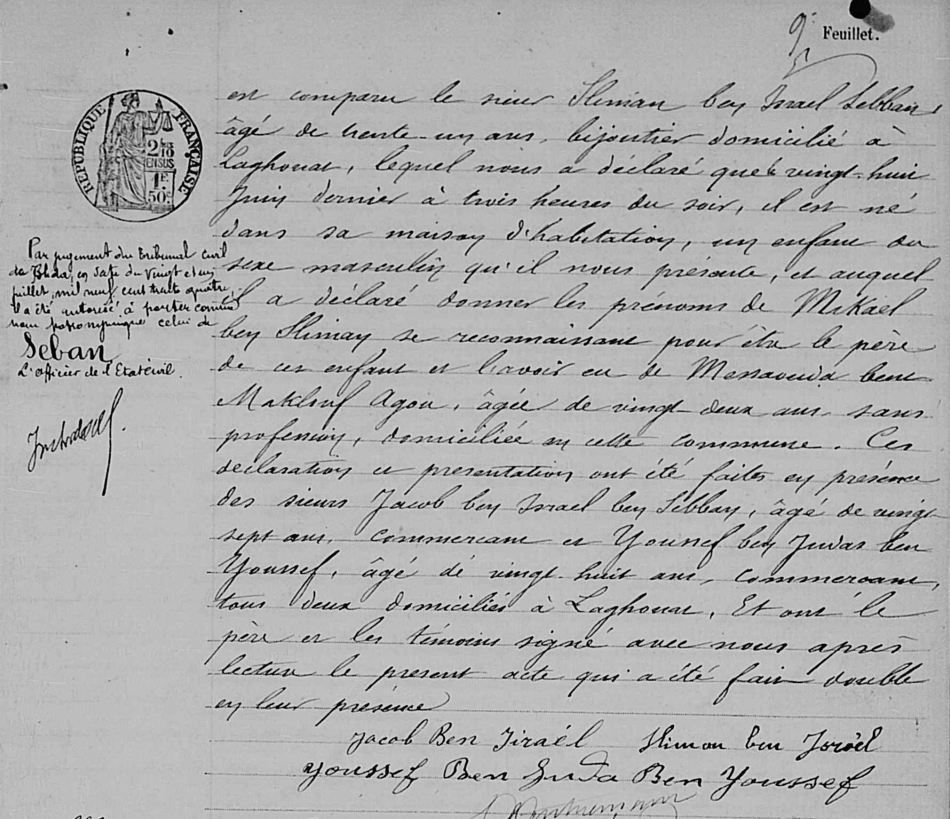 9e Feuillet.
est comparu le sieur Sliman ben Israel Sebban,
âgé de trente-un ans, bijoutier domicilié à
Laghouat, lequel nous a déclaré que le vingt-huit
Juin dernier à trois heures du soir, il est né
dans sa maison d'habitation, un enfant du
sexe masculin qu'il nous présente, et auquel
il a déclaré donner les prénoms de Mikael
ben Sliman se reconnaissant pour être le père
de cet enfant et l'avoir eu de Messaouda bent
Maklouf Agou, âgée de vingt-deux ans sans
profession, domiciliée en cette commune. Ces
déclaration et presentation ont été faites en présence
des sieurs Jacob ben Israel ben Sebban, âgé de vingt
sept ans, commercant et Youssef ben Judas ben
Youssef, âgé de vingt-huit ans, commercant,
tous deux domiciliés à Laghouat, Et ont le
père et les témoins signé avec nous après
lecture le present acte qui a été fait double
en leur présence
Jacob Ben Jiraél Slimon ben Israël
Youssef Ben Juda Ben Youssef
RÉPUBLIQUE FRANÇAISE
2/10
EN SUS
1F
50c
Par jugement du tribunal civil
de Blida, en date du vingt et un
juillet, mil neuf cent trente quatre
il a été autorisé à porter comme
nom patronymique celui de
Seban
L'officier de l'Etat civil.